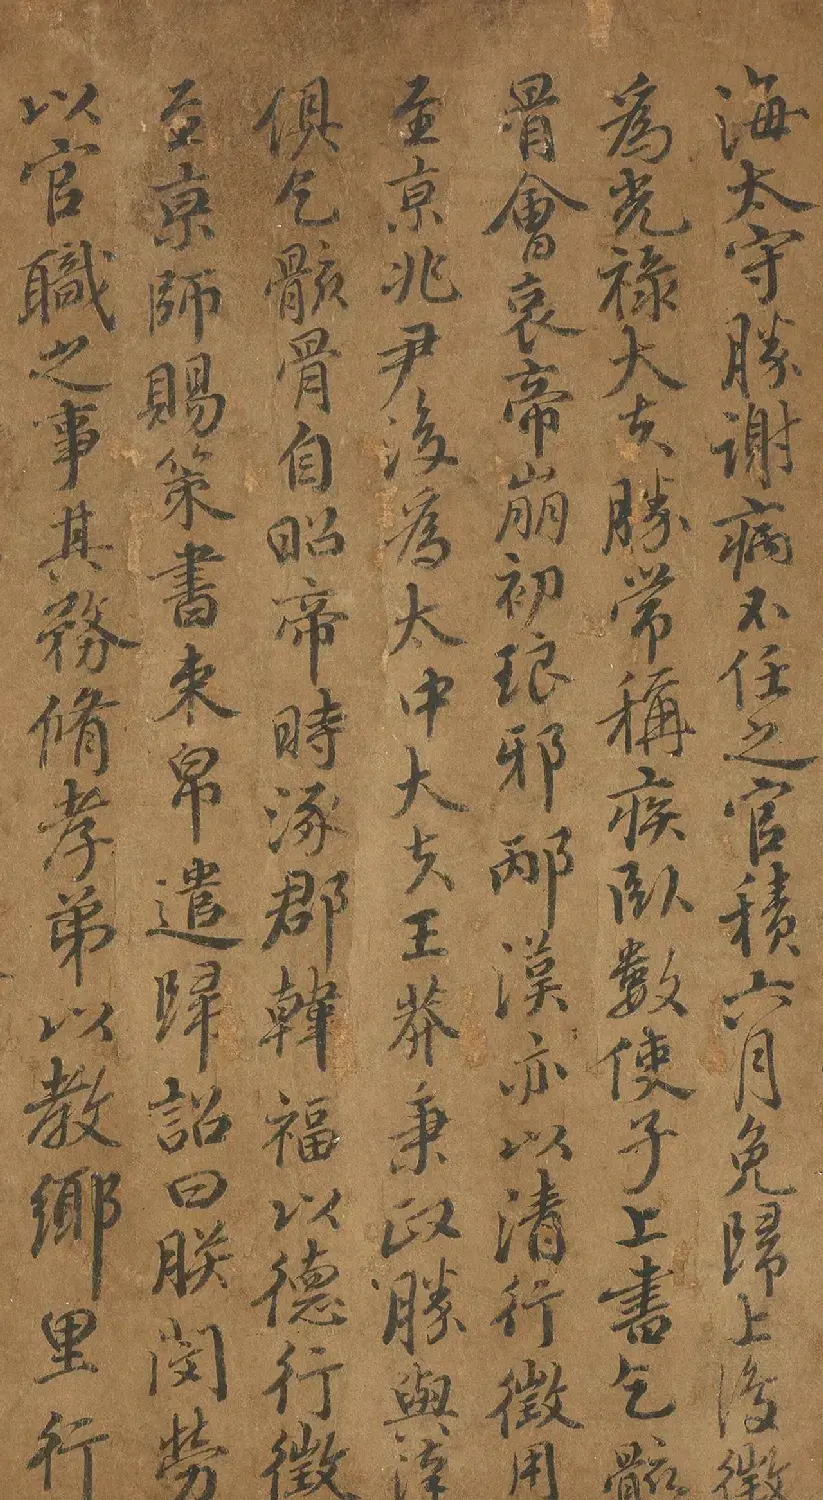 海太守勝謝病不任之官積六月免歸上復徵
為光祿大夫勝常稱疾臥數使子上書乞骸
骨會哀帝崩初琅邪邴漢亦以清行徵用
至京兆尹後為太中大夫王莽秉政勝與漢
俱乞骸骨自昭帝時涿郡韓福以德行徵
至京師賜策書束帛遣歸詔曰朕閔勞
以官職之事其務脩孝弟以教鄉里行